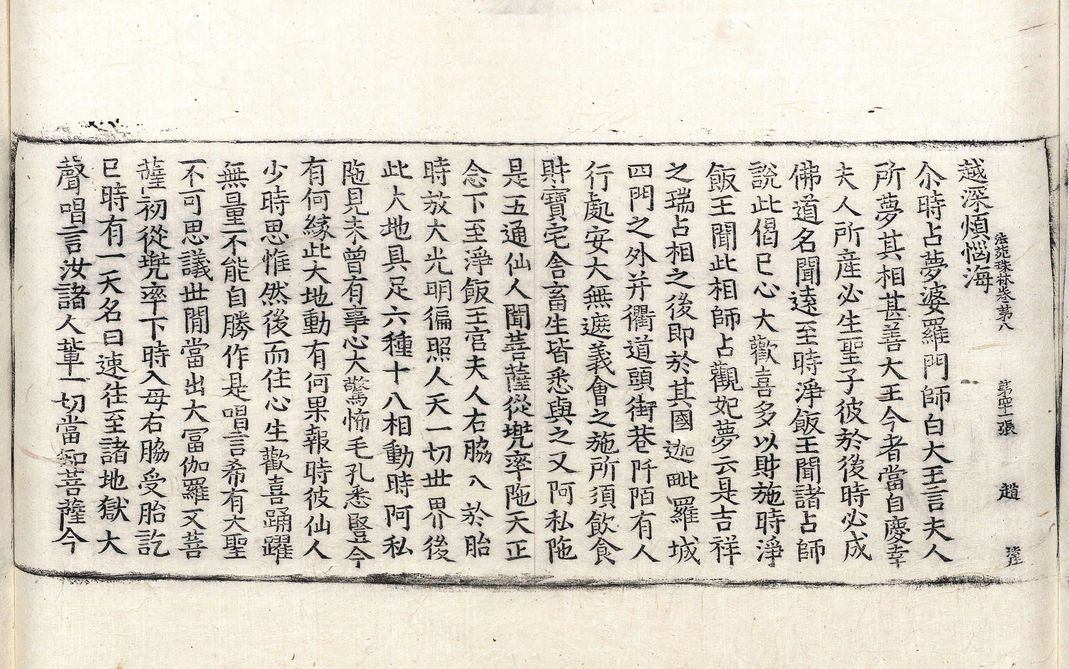 法苑珠林卷第八　第四十一張　趙
越深煩惱海
尒時占夢婆羅門師白大王言夫人
所夢其相甚善大王今者當自慶幸
夫人所産必生聖子彼於後時必成
佛道名聞遠至時淨飯王聞諸占師
說此偈已心大歡喜多以財施時淨
飯王聞此相師占觀妃夢云是吉祥
之瑞占相之後即於其國迦毗羅城
四門之外并衢道頭街巷阡陌有人
行處安大無遮義會之施所須飲食
財寶宅舍畜生皆悉與之又阿私陁
是五通仙人聞菩薩從兠率陁天正
念下至淨飯王宮夫人右脇入於胎
時放大光明徧照人天一切世界後
此大地具足六種十八相動時阿私
陁見未曾有事心大驚怖毛孔悉豎今
有何緣此大地動有何果報時彼仙人
少時思惟然後而住心生歡喜踊躍
無量不能自勝作是唱言希有大聖
不可思議世閒當出大冨伽羅又菩
薩初從兠率下時入母右脇受胎訖
已時有一天名曰速往至諸地獄大
聲唱言汝諸人軰一切當知菩薩今